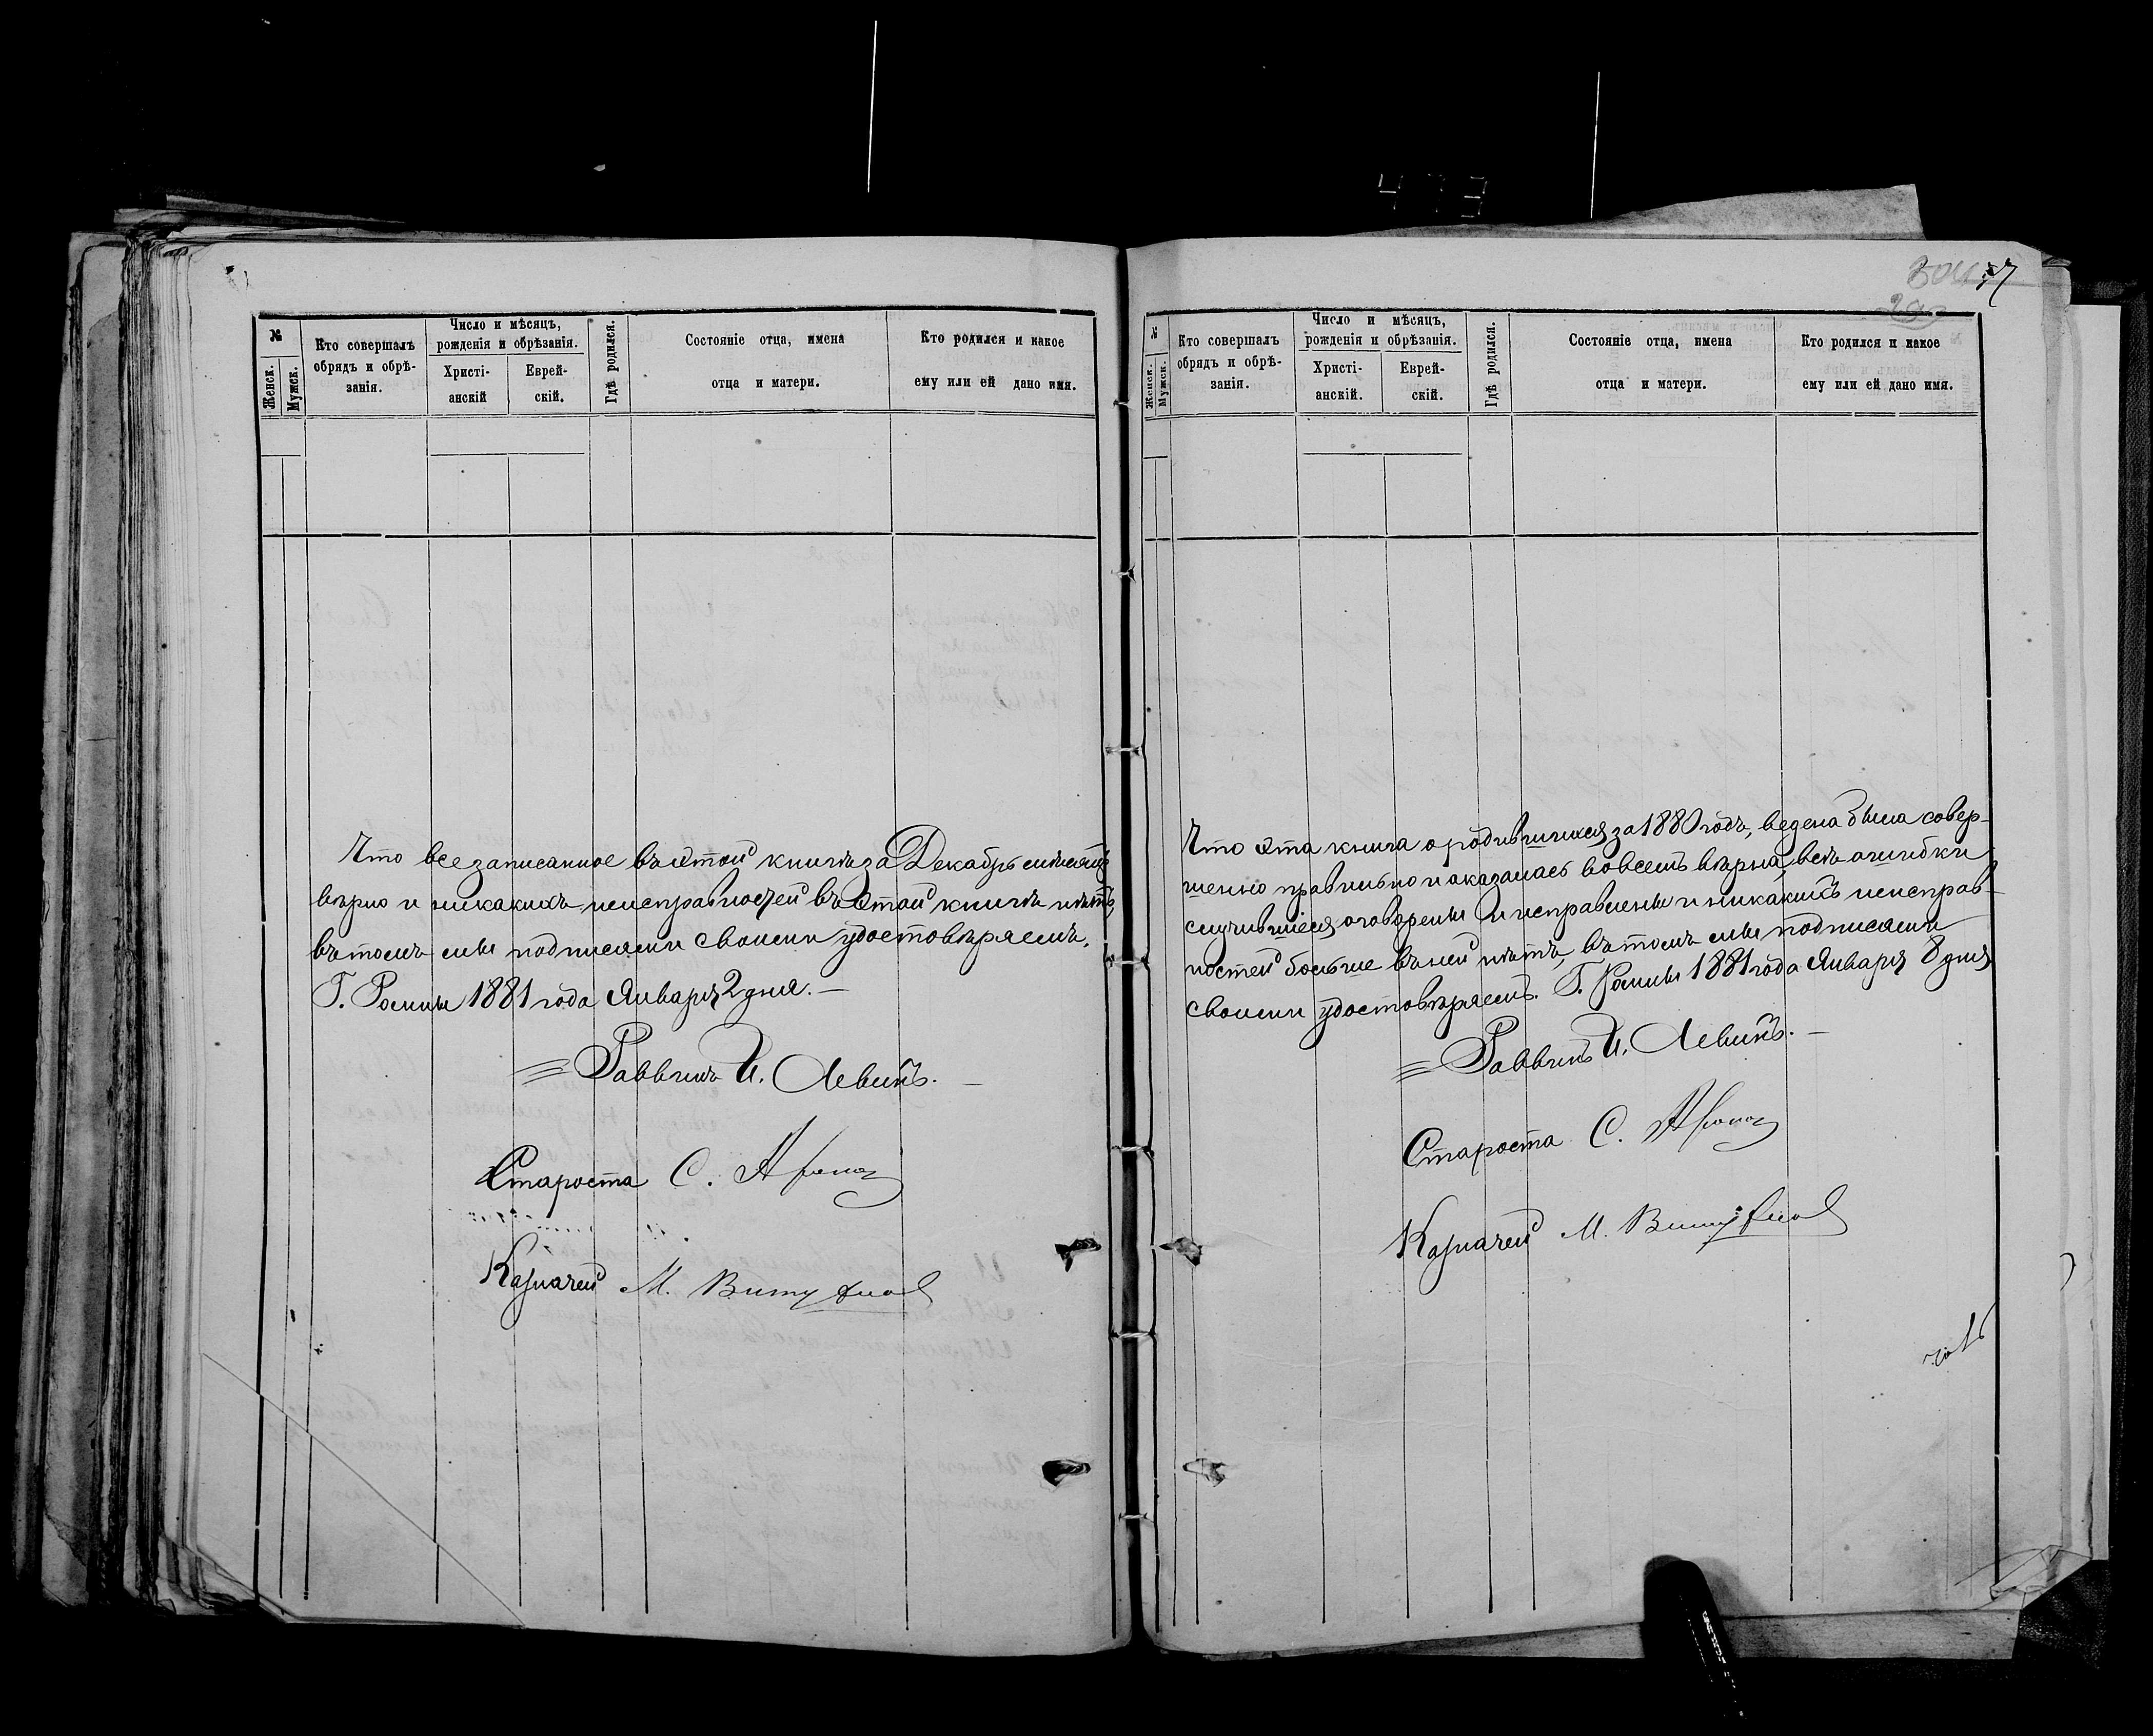 473
77
№
Женск.
Мужск.
Кто совершалъ
обрядъ и обрѣ-
занія.
Число и мѣсяцъ,
рожденія и обрѣзанія.
Христі-
анскій
Еврей-
скій.
Гдѣ родился.
Состояніе отца, имена
отца и матери.
Кто родился и какое
ему или ей дано имя.
Что все записанное въ этой книгѣ за Декабрь мѣсяцъ
вѣрно и никакихъ неисправностей въ этой книгѣ нѣтъ,
въ томъ мы подписями своими удостовѣряемъ.
Г. Ромны 1881 года Января 2 дня. —
Раввинъ И. Левинъ. —
Староста С. 
Казначей М.
№
Женск.
Мужск.
Кто совершалъ
обрядъ и обрѣ-
занія.
Число и мѣсяцъ,
рожденія и обрѣзанія.
Христі-
анскій.
Еврей-
скій.
Гдѣ родился.
Состояніе отца, имена
отца и матери.
Кто родился и какое
ему или ей дано имя.
Что эта книга о родившихся за 1880 годъ, ведена была совер-
шенно правильно и оказалась во всемъ вѣрна, всѣ ошибки
случившіеся оговорены и исправлены и никакихъ неисправ-
ностей больше въ ней нѣтъ, въ томъ мы подписями
своими удостовѣряемъ. Г. Ромны 1881 года Января 8 дня
Раввинъ И. Левинъ. —
Староста С.
Казначей М.